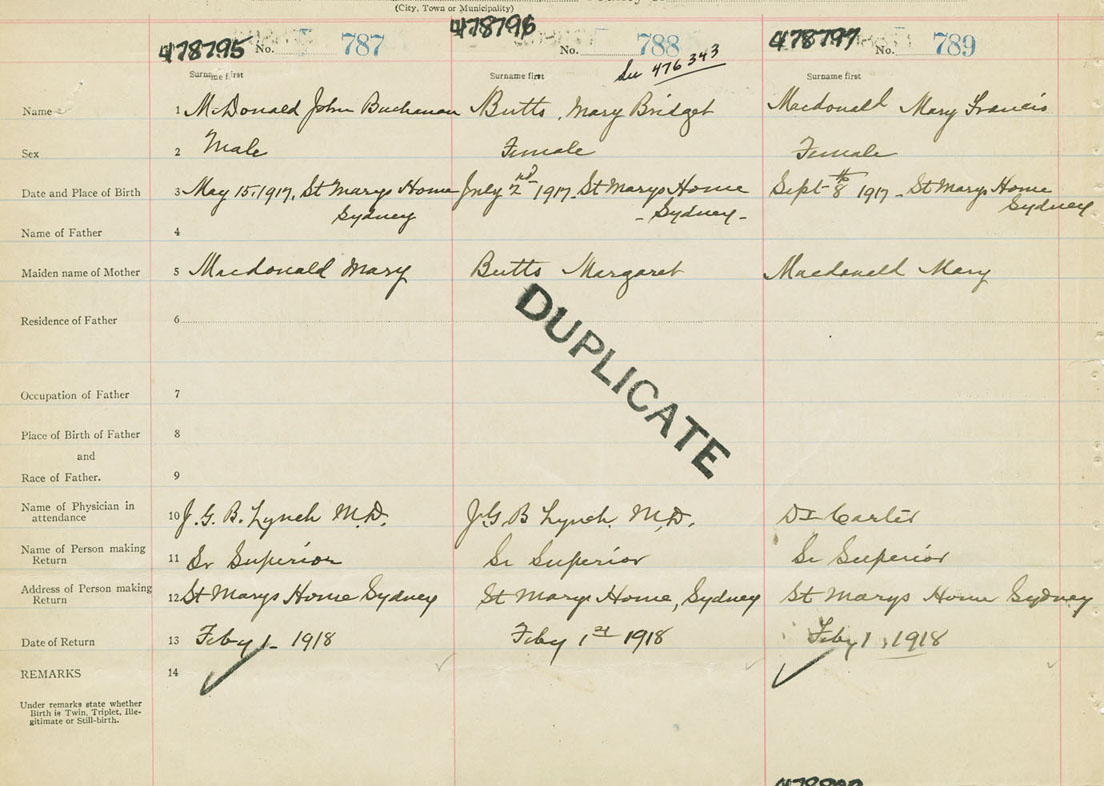 (City, Town or Municipality)
478795 No. 787 478796 No. 788 478797 No. 789
See 476343
Surname first Surname first Surname first
Name 1 McDonald John Buchanan Butts, Mary Bridget Macdonald Mary Francis
Sex 2 Male Female Female
Date and Place of Birth 3 May 15, 1917, St Marys Home July 2nd 1917- St Marys Home Sept 8th 1917 - St Marys Home
Sydney - Sydney - Sydney
Name of Father 4
Maiden name of Mother 5 Macdonald Mary Butts Margaret Macdonald Mary
Residence of Father 6
DUPLICATE
Occupation of Father 7
Place of Birth of Father 8
and
Race of Father. 9
Name of Physician in
attendance 10 J. G. B. Lynch M.D. J G B Lynch M.D. Dr Carter
Name of Person making
Return 11 Sr Superior Sr Superior Sr Superior
Address of Person making
Return 12 St Marys Home Sydney St Marys Home, Sydney St Marys Home Sydney
Date of Return 13 Feby 1 - 1918 Feby 1st 1918 Feby 1, 1918
REMARKS 14
Under remarks state whether
Birth is Twin, Triplet, Ille-
gitimate or Still-birth.